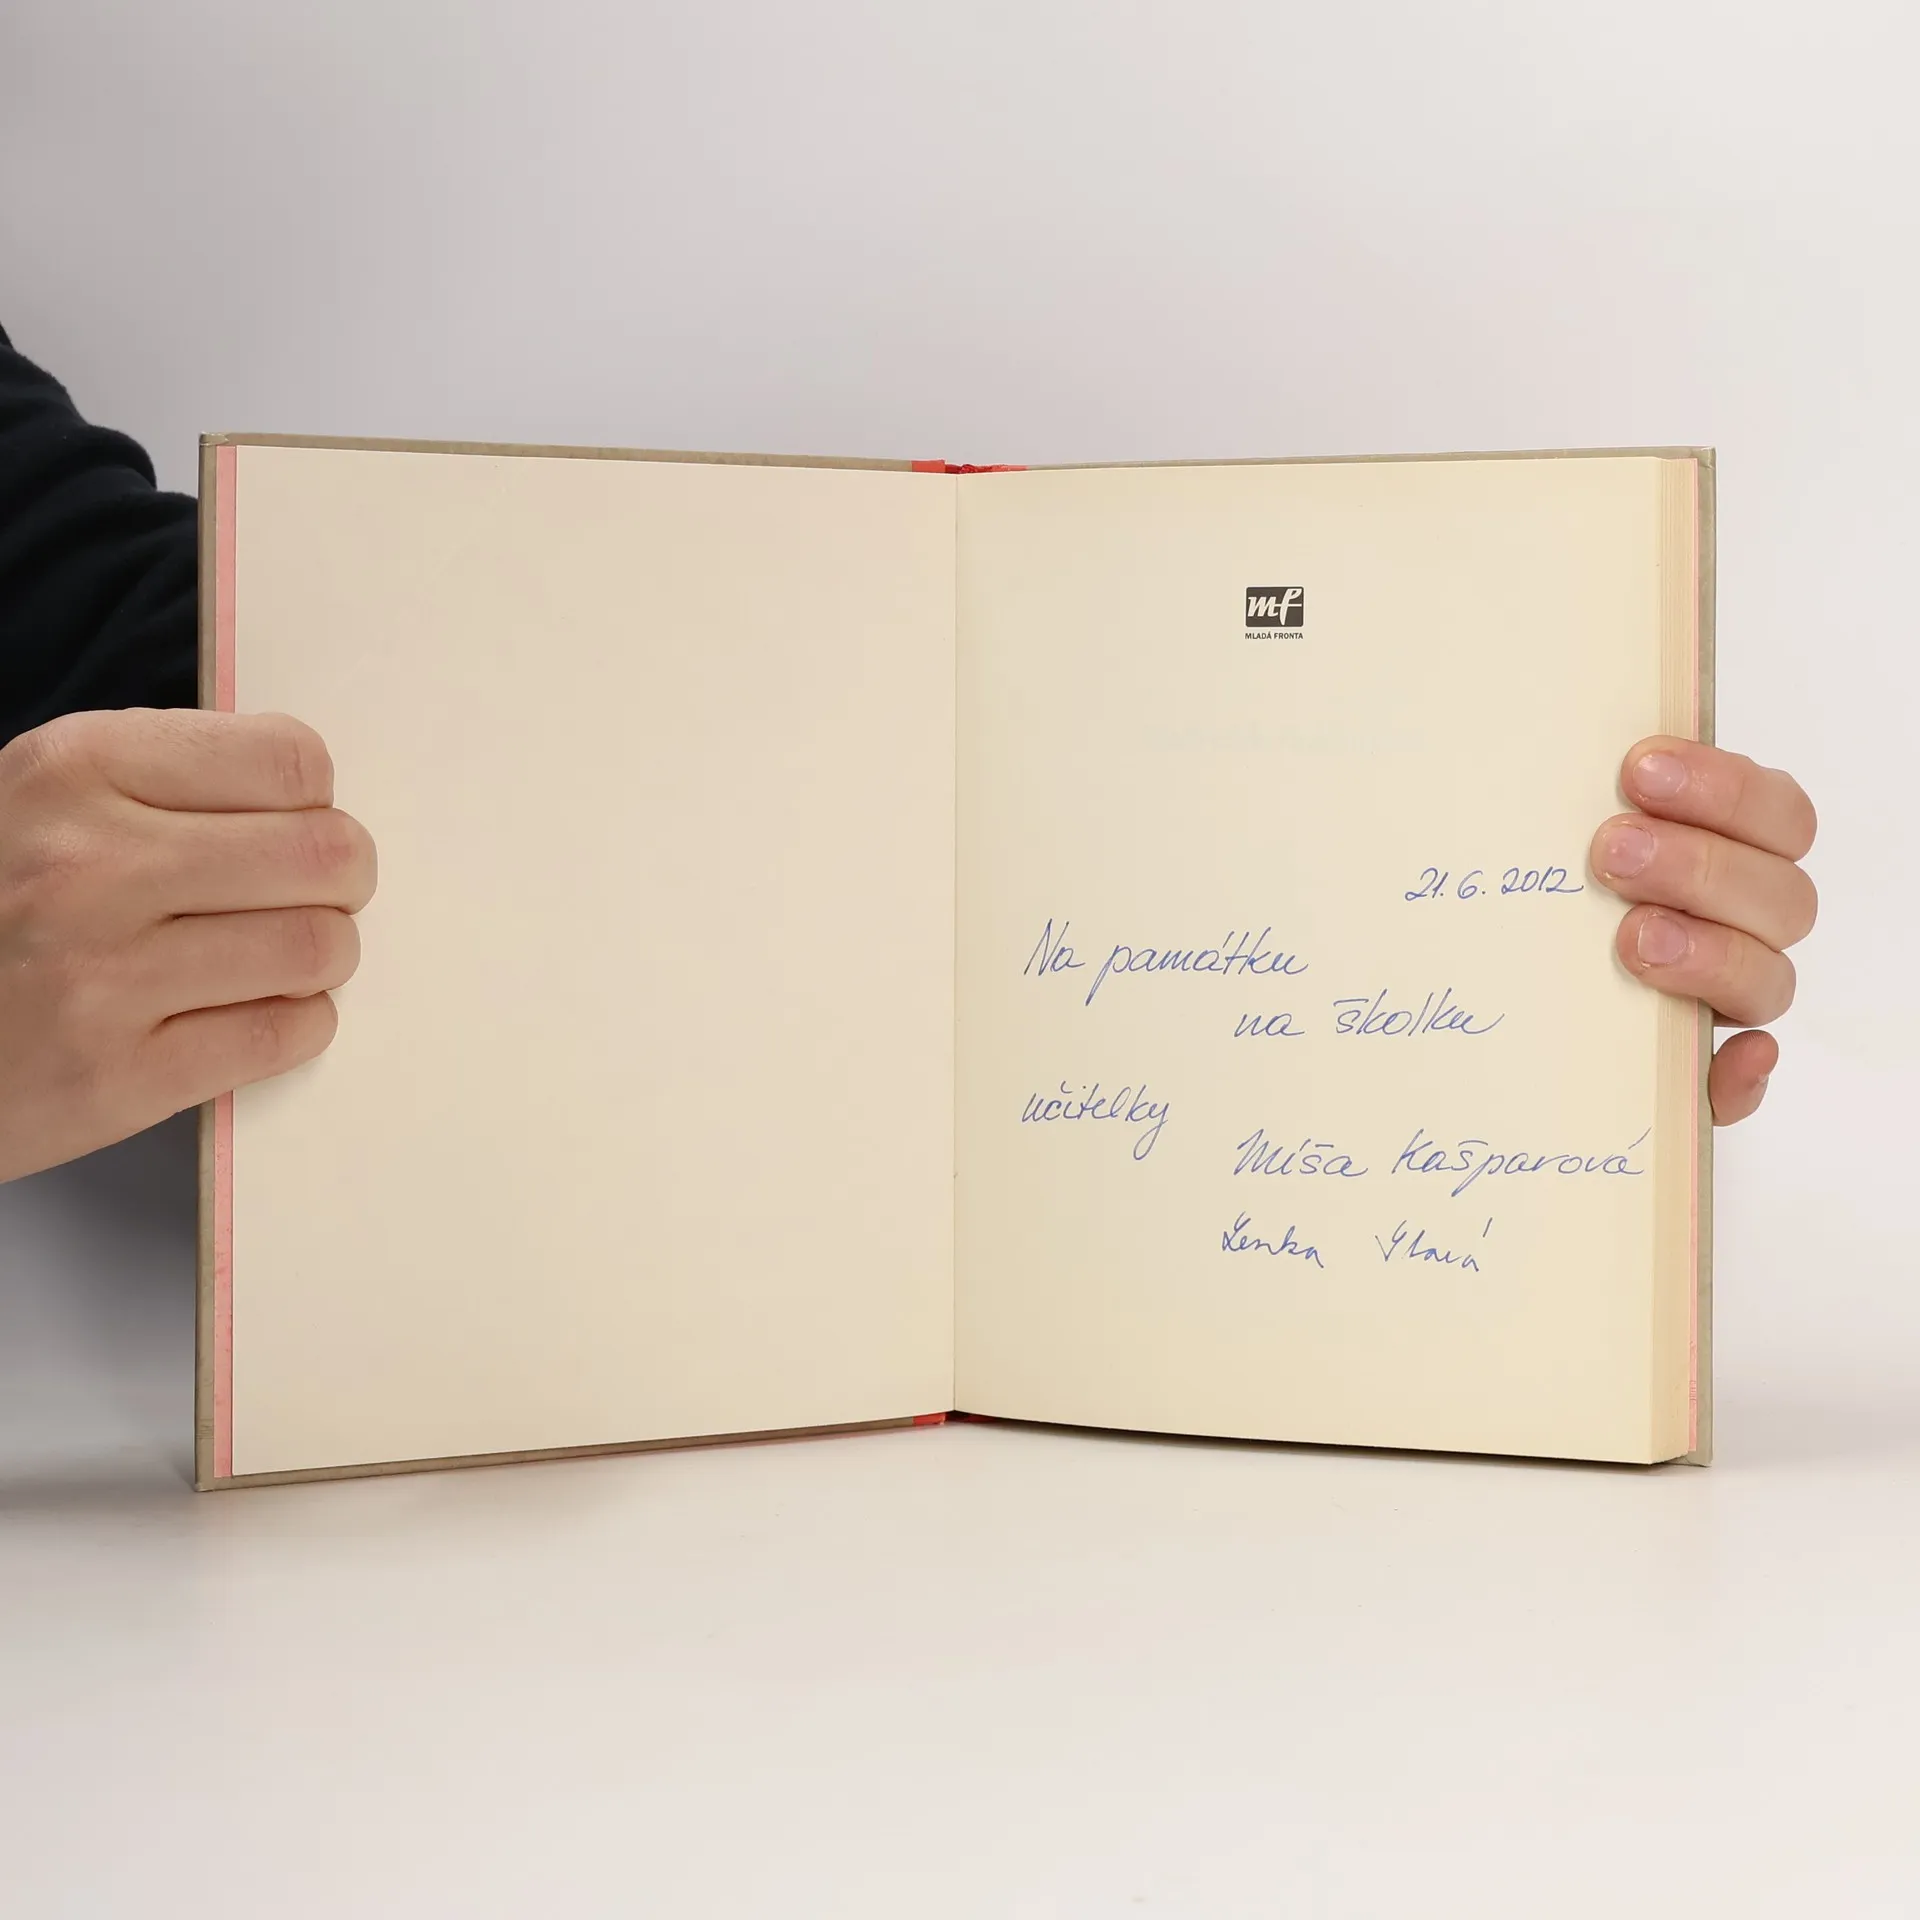 mf
MLADÁ FRONTA
21. 6. 2012
Na památku
na školku
učitelky
Míša Kašparová
Lenka